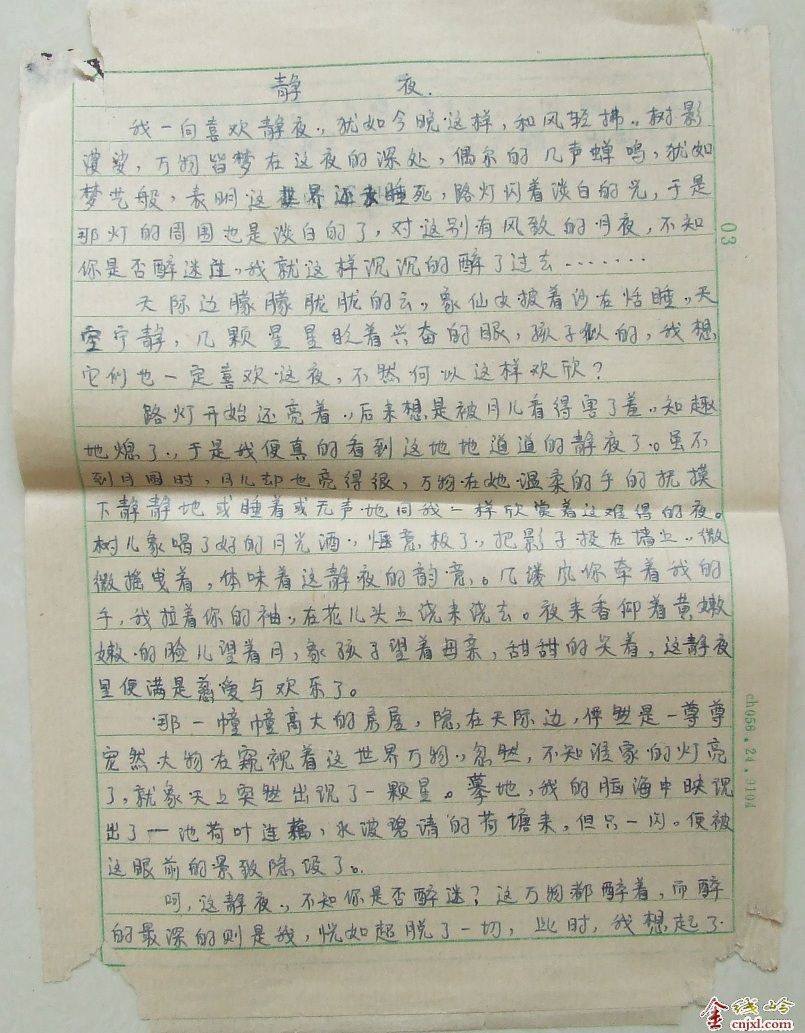 静 夜.
我一向喜欢静夜，犹如今晚这样，和风轻拂。树影
婆娑，万物皆梦在这夜的深处，偶尔的几声蝉鸣，犹如
梦艺般，表明这世界还未睡死，路灯闪着淡白的光，于是
那灯的周围也是淡白的了，对这别有风致的月夜，不知
你是否醉迷，我就这样沉沉的醉了过去⋯⋯
天际边朦朦胧胧的云，象仙女披着沙在恬睡，天
空宁静，几颗星星眨着兴奋的眼，孩子似的，我想，
它们也一定喜欢这夜，不然何以这样欢欣？
路灯开始还亮着，后来想是被月儿看得害了羞，知趣
地熄了，于是我便真的看到这地地道道的静夜了。虽不
到月圆时，月儿却也亮得很，万物在她温柔的手的抚摸
下静静地或睡着或无声地同我一样欣赏着这难得的夜。
树儿象喝了好的月光酒，惬意极了，把影子投在墙上，微
微摇曳着，体味着这静夜的韵意。几缕风你牵着我的
手，我拉着你的袖，在花儿头上浇来浇去。夜来香仰着黄嫩
嫩的脸儿望着月，象孩子望着母亲，甜甜的笑着，这静夜
里便满是慈爱与欢乐了。
那一幢幢高大的房屋，隐在天际边，俨然是一尊尊
宠然大物在窥视着这世界万物，忽然，不知谁家的灯亮
了，就象天上突然出现了一颗星。蓦地，我的脑海中映现
出了一池荷叶连藕，水波碧清的荷塘来，但只一闪。便被
这眼前的景致隐没了。
呵，这静夜，不知你是否醉迷？这万物都醉着，而醉
的最深的则是我，恍如超脱了一切，此时，我想起了
03
ch056.24.9104
金线岭
cnjxl.com